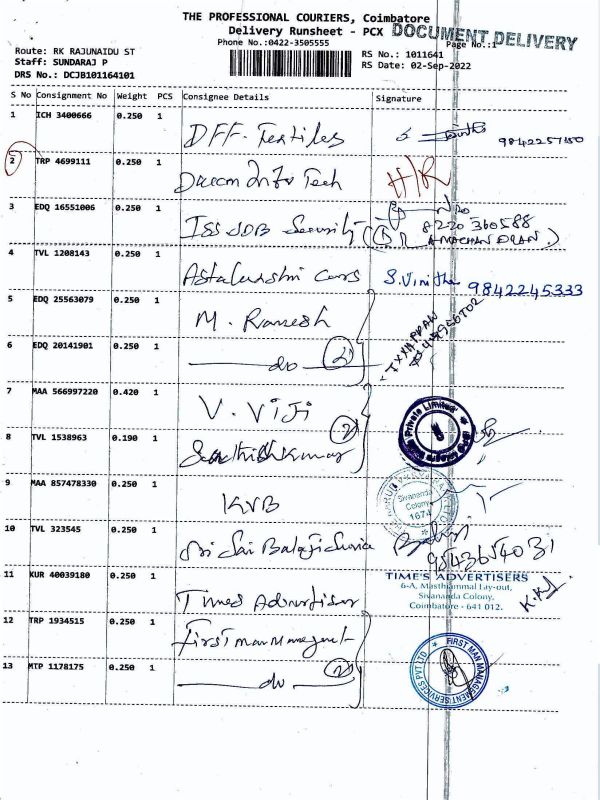 THE PROFESSIONAL COURIERS, Coimbatore
Delivery Runsheet - PCX DOCUMENT DELIVERY
Phone No.:0422-3505555 Page No.:1
Route: RK RAJUNAIDU ST RS No.: 1011641
Staff: SUNDARAJ P RS Date: 02-Sep-2022
DRS No.: DCJB101164101
S No Consignment No Weight PCS Consignee Details Signature
1 ICH 3400666 0.250 1 DFF. Textiles
2 TRP 4699111 0.250 1 Dream Info Tech H/R
3 EDQ 16551006 0.250 1 ISS SDB Security 8220360588
4 TVL 1208143 0.250 1 Cars S.Vinitha 9842245333
5 EDQ 25563079 0.250 1 M. Ramesh
6 EDQ 20141901 0.250 1 do 2
7 MAA 566997220 0.420 1 V. VIJI Private Limited
8 TVL 1538963 0.190 1 Sathishkumar 2
9 MAA 857478330 0.250 1 KVB Sivananda Colony 1674
10 TVL 323545 0.250 1 Sri Sai Balaji Service 9543654031
11 KUR 40039180 0.250 1 Times Advertiser TIME'S ADVERTISERS
6-A, Masthiammal Lay-out,
Sivananda Colony,
Coimbatore - 641 012.
12 TRP 1934515 0.250 1 First Man Managent
13 MTP 1178175 0.250 1 do 2 FIRST MAN MANAGEMENT SERVICES PVT LTD